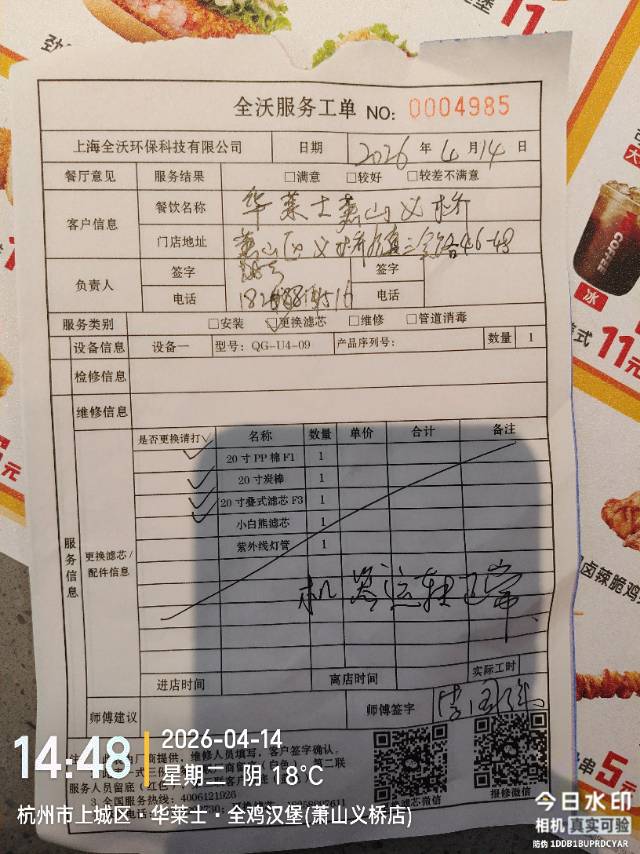 全沃服务工单 NO: 0004985
上海全沃环保科技有限公司 日期 2026 年 4 月 14 日
餐厅意见 服务结果 □满意 □较好 □较差不满意
客户信息 餐饮名称 华莱士萧山义桥
门店地址 萧山区义桥
46-48
负责人 签字 签字
电话 电话
服务类别 □安装 ☑更换滤芯 □维修 □管道消毒
设备信息 设备一 型号: QG-U4-09 产品序列号: 数量 1
检修信息
维修信息
服务信息
更换滤芯/配件信息
是否更换请打√ 名称 数量 单价 合计 备注
√ 20寸PP棉F1 1
√ 20寸炭棒 1
√ 20寸叠式滤芯F3 1
√ 小白熊滤芯 1
紫外线灯管 1
机器运转正常
进店时间 离店时间 实际工时
师傅建议 师傅签字
3.全国服务热线: 4006121926
报修微信
14:48
2026-04-14
星期二 阴 18°C
杭州市上城区·华莱士·全鸡汉堡(萧山义桥店)
今日水印
相机 真实可验
防伪 1DDB1BUPRDCYAR
COFFEE
冰
11元
5元